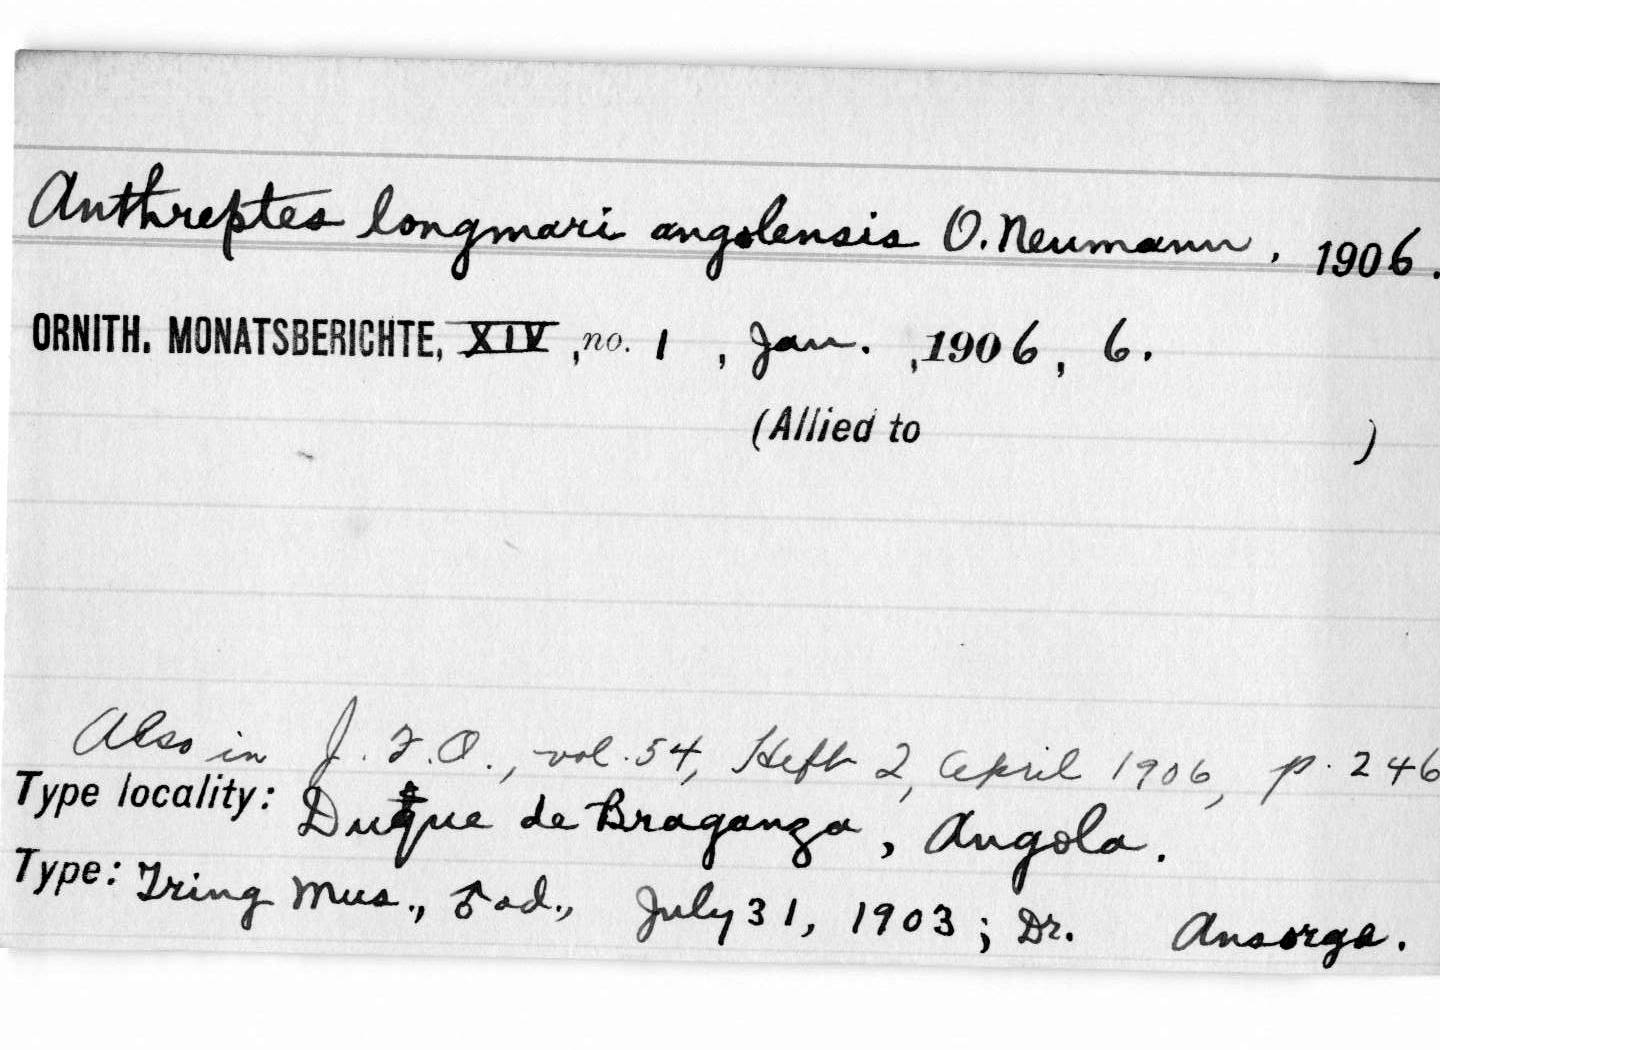 Anthreptes longmari angolensis O. Neumann, 1906.
ORNITH. MONATSBERICHTE, XIV, no. 1, Jan., 1906, 6.
(Allied to )
Also in J. F. O., vol. 54, Heft 2, April 1906, p. 246
Type locality: Duque de Braganza, Angola.
Type: Tring Mus., ♂ ad., July 31, 1903; Dr. Ansorge.